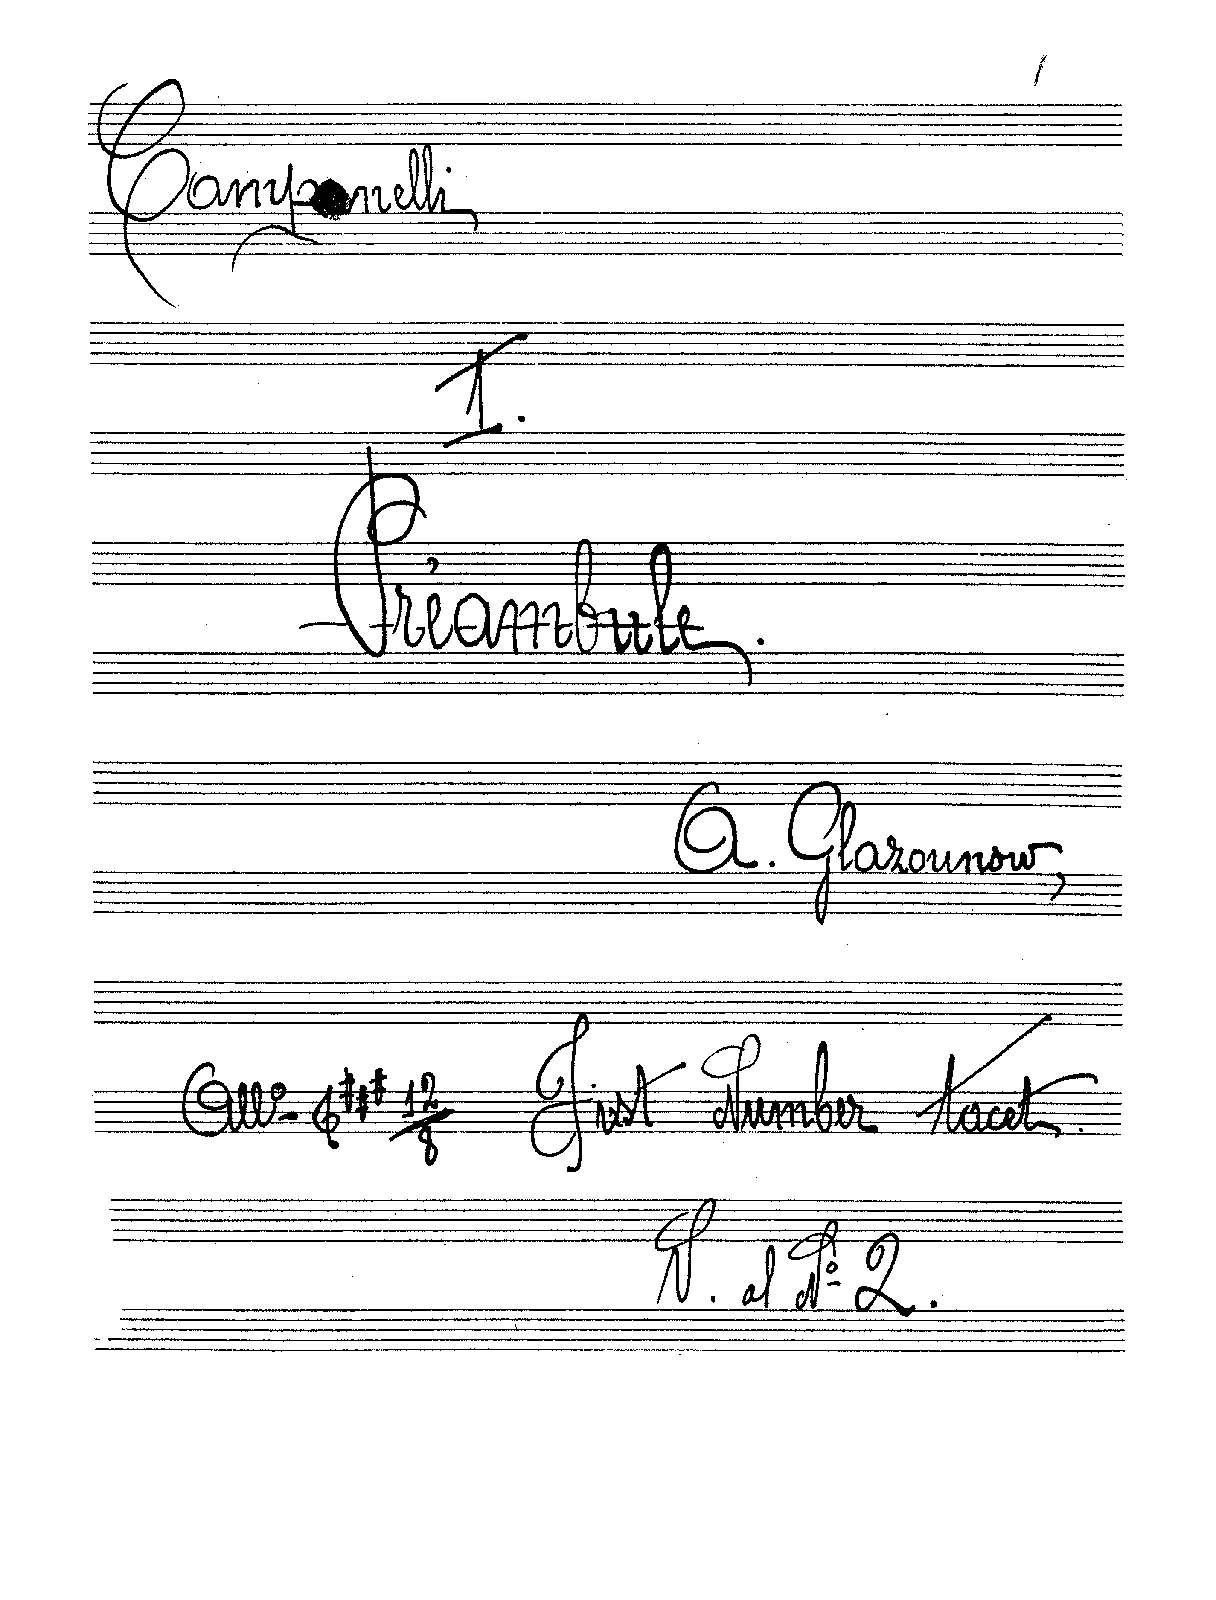 1
Campanelli
I.
Préambule.
A. Glazounow,
All⁰- 12/8 First Number tacet.
V. al Nº 2.